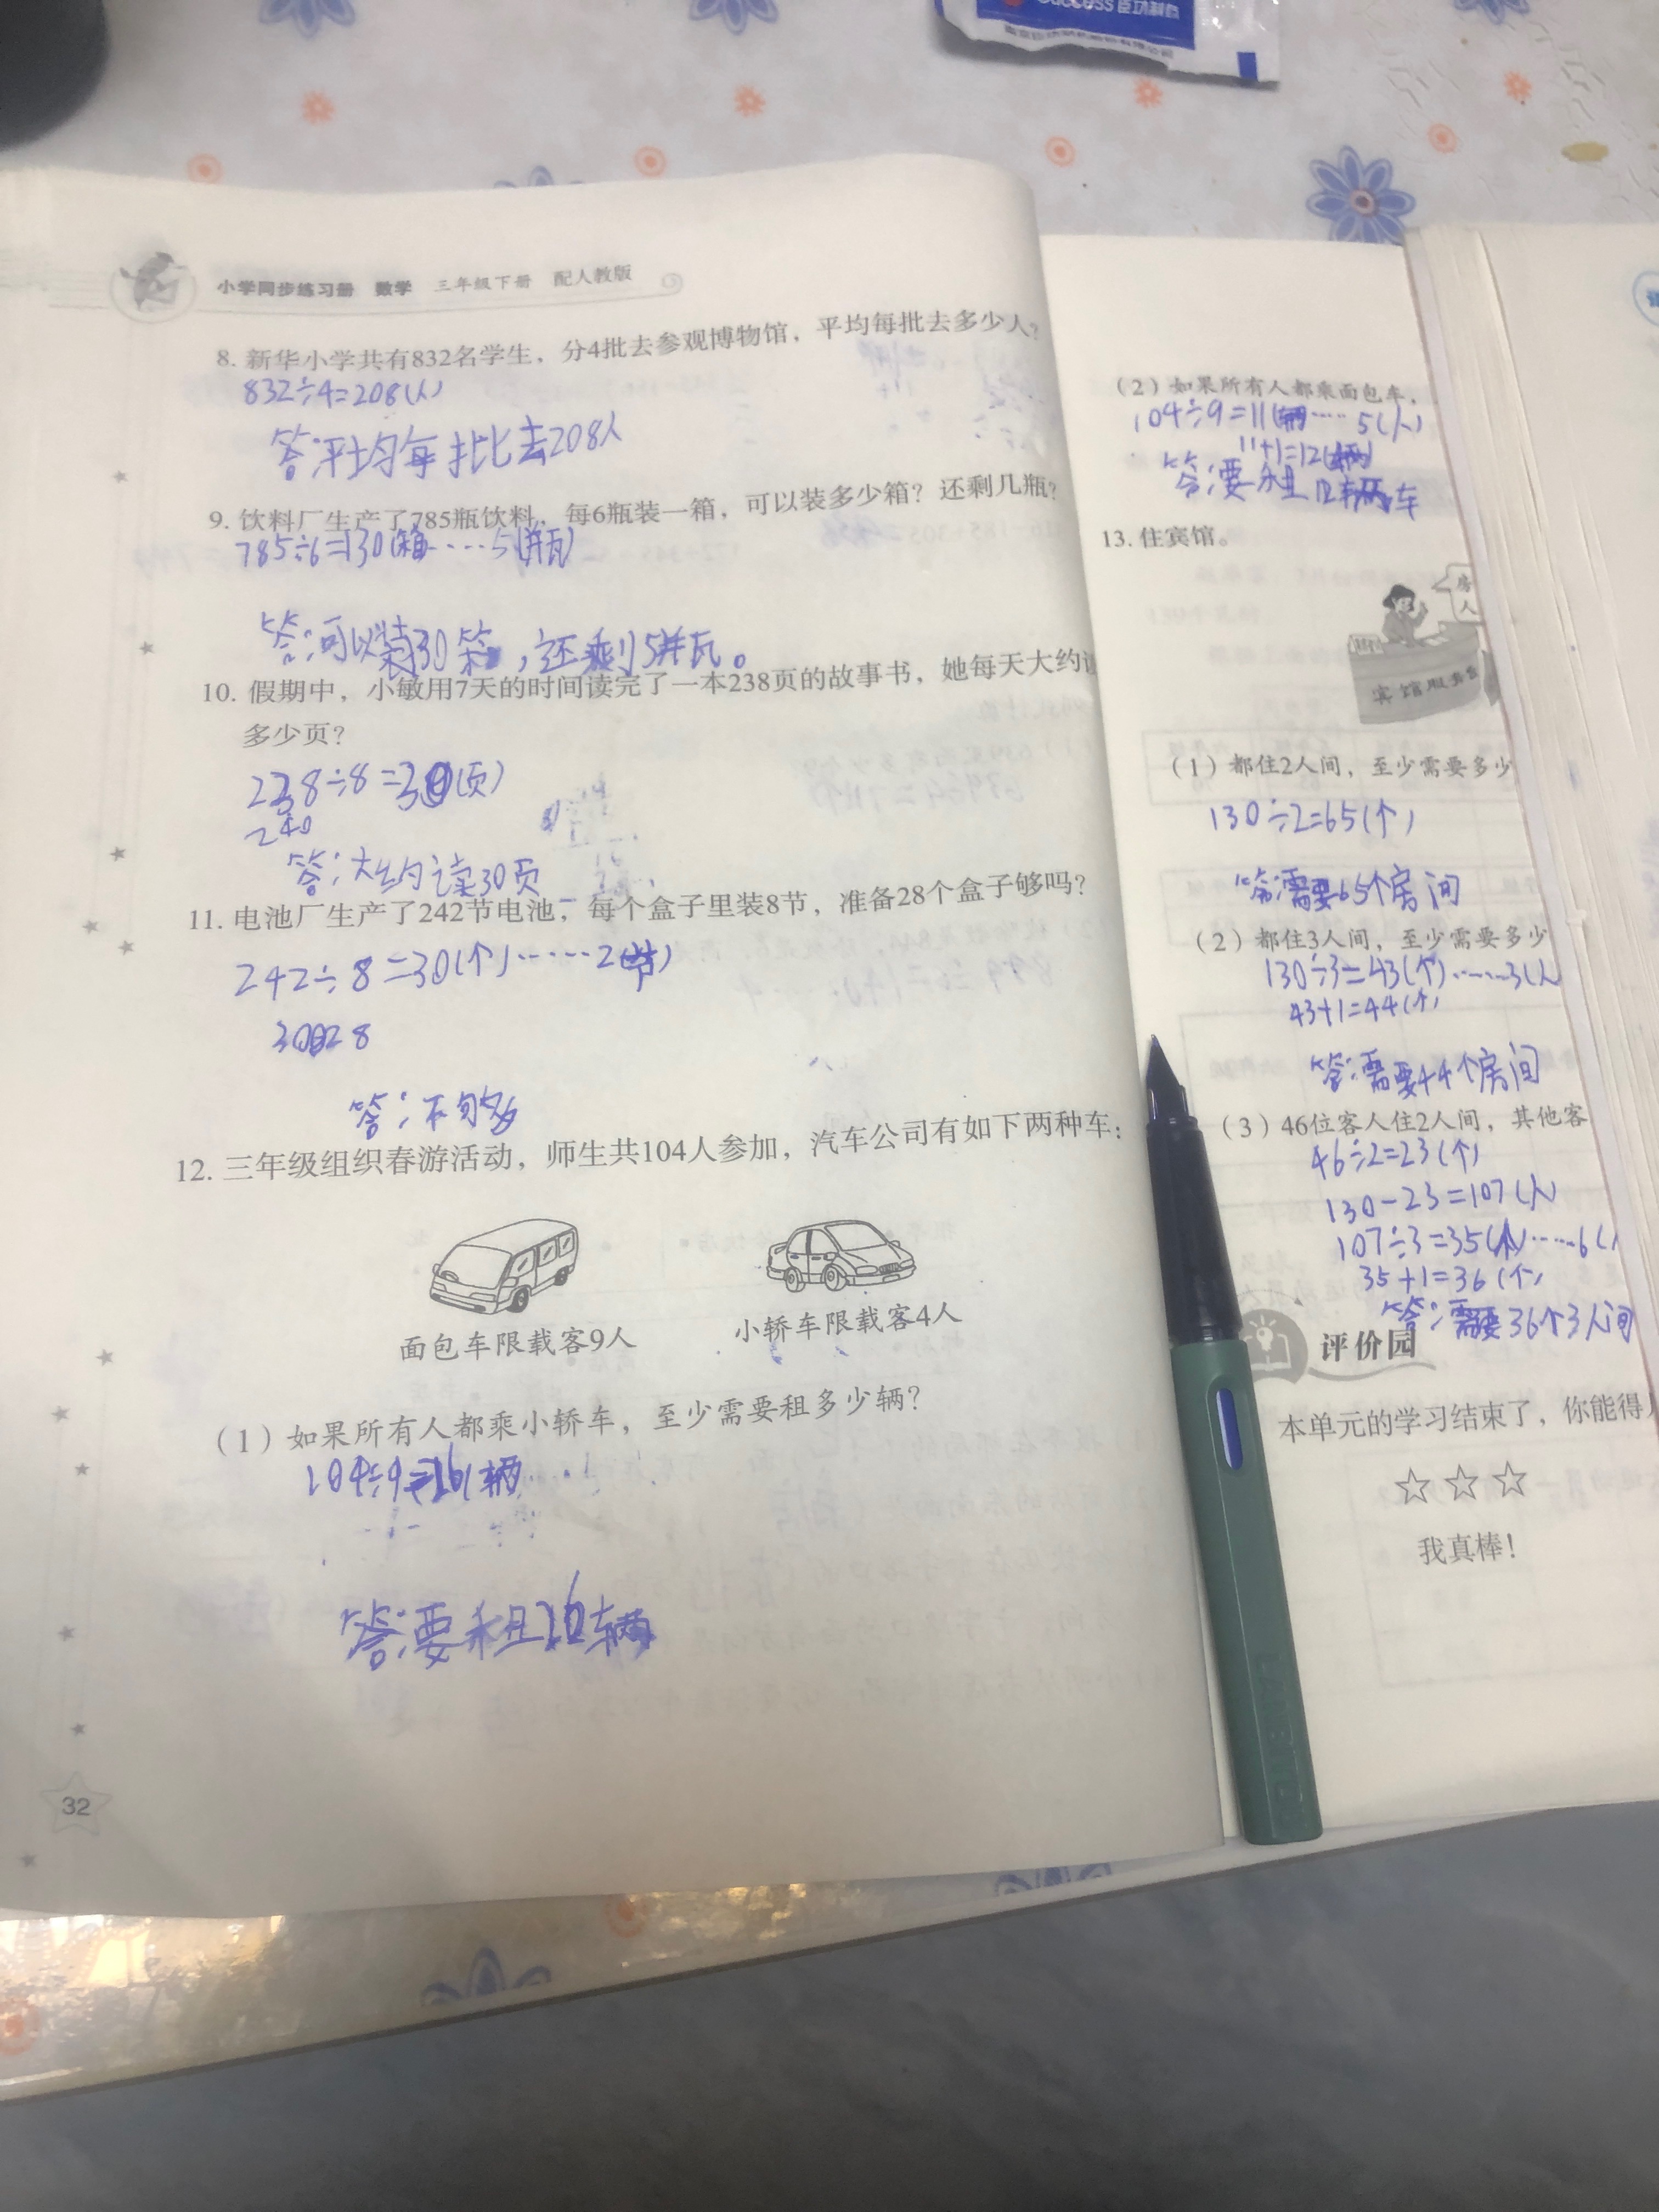 Success 臣功制药
小学同步练习册 数学 三年级下册 配人教版
8. 新华小学共有832名学生，分4批去参观博物馆，平均每批去多少人？
832÷4=208(人)
答:平均每批去208人
9. 饮料厂生产了785瓶饮料，每6瓶装一箱，可以装多少箱？还剩几瓶？
785÷6=130(箱)……5(瓶)
答:可以装130箱，还剩5瓶。
10. 假期中，小敏用7天的时间读完了一本238页的故事书，她每天大约读
多少页？
238÷8=30(页)
240
答:大约读30页
11. 电池厂生产了242节电池，每个盒子里装8节，准备28个盒子够吗？
242÷8=30(个)……2(节)
答:不够
12. 三年级组织春游活动，师生共104人参加，汽车公司有如下两种车：
面包车限载客9人
小轿车限载客4人
（1）如果所有人都乘小轿车，至少需要租多少辆？
答:要租26辆
32
（2）如果所有人都乘面包车，
104÷9=11(辆)……5(人)
11+1=12(辆)
答:要租12辆车
13. 住宾馆。
房
人
宾馆服务台
（1）都住2人间，至少需要多少
130÷2=65(个)
答:需要65个房间
（2）都住3人间，至少需要多少
130÷3=43(个)……3(人
43+1=44(个)
答:需要44个房间
（3）46位客人住2人间，其他客
46÷2=23(个)
130-23=107(人)
107÷3=35(个)……6(
35+1=36(个)
答:需要36个3人间
评价园
本单元的学习结束了，你能得
☆☆☆
我真棒！